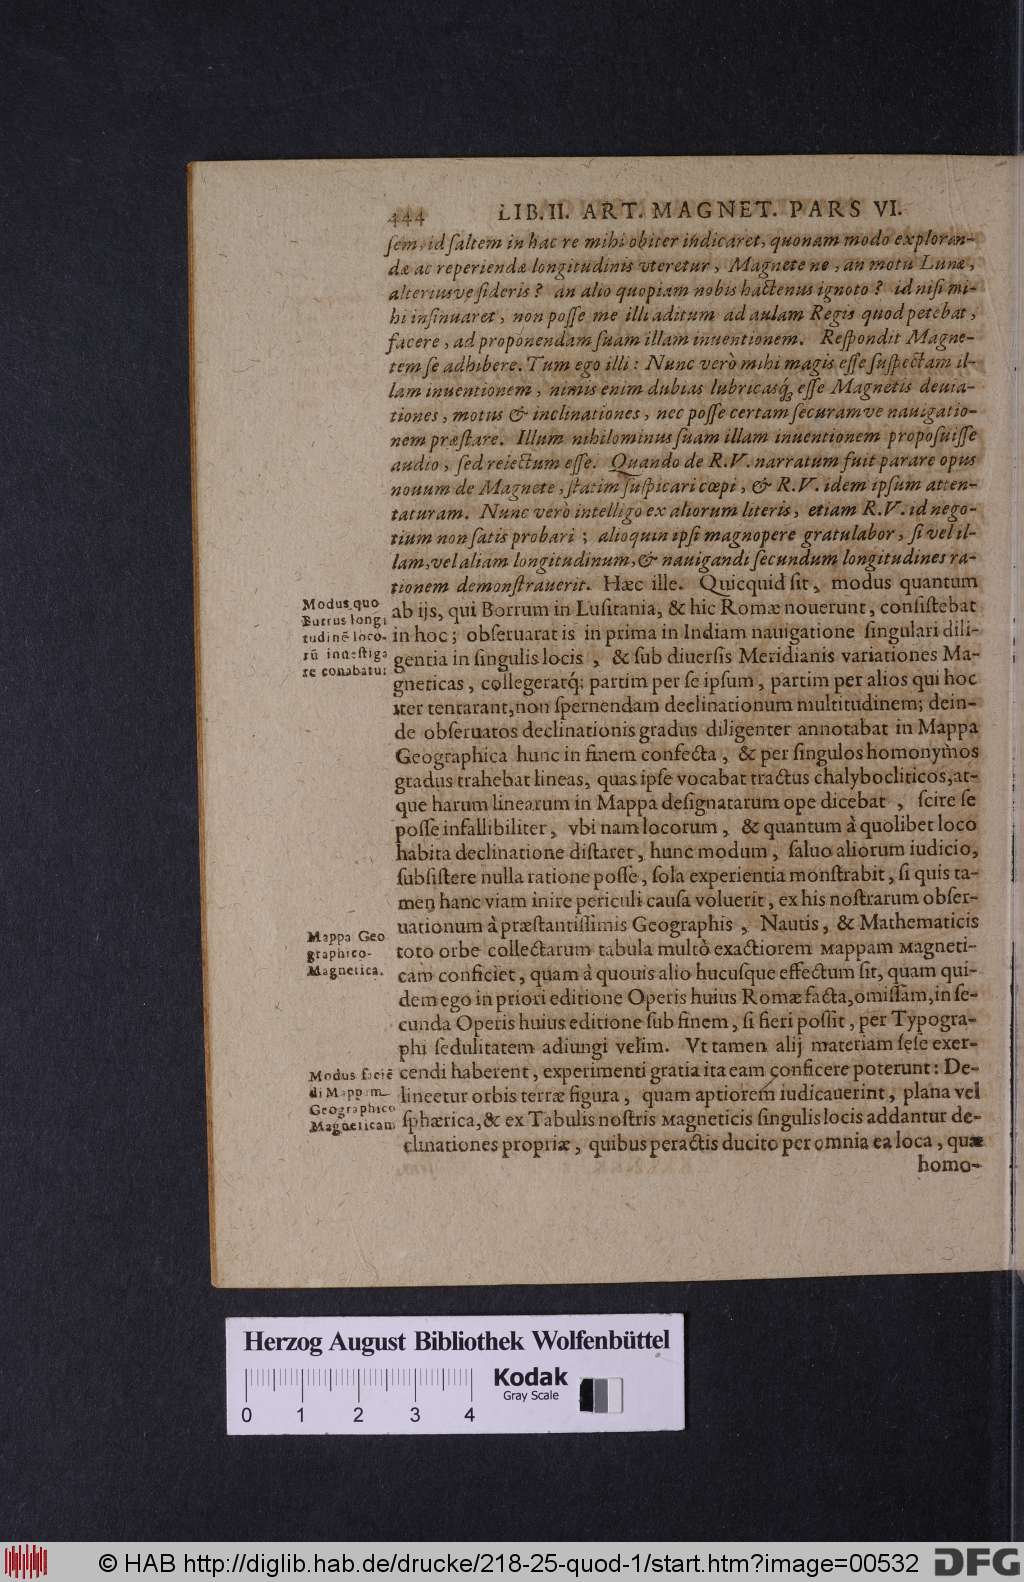 444 LIB. II. ART. MAGNET. PARS VI.
ſem, id ſaltem in hac re mihi obiter indicaret, quonam modo exploran-
dæ ac reperiendæ longitudinis vteretur, Magnete ne, an motu Lunæ,
alteriusve ſideris? an alio quopiam nobis hactenus ignoto? id niſi mi-
hi inſinuaret, non poſſe me illi aditum ad aulam Regis quod petebat,
facere, ad proponendam ſuam illam inuentionem. Reſpondit Magne-
tem ſe adhibere. Tum ego illi: Nunc verò mihi magis eſſe ſuſpectam il-
lam inuentionem, nimis enim dubias lubricasq́; eſſe Magnetis deuia-
tiones, motus & inclinationes, nec poſſe certam ſecuramve nauigatio-
nem præſtare. Illum nihilominus ſuam illam inuentionem propoſuiſſe
audio, ſed reiectum eſſe. Quando de R.V. narratum fuit parare opus
nouum de Magnete, ſtatim ſuſpicari cœpi, & R.V. idem ipſum atten-
taturam. Nunc verò intelligo ex aliorum literis, etiam R.V. id nego-
tium non ſatis probari; alioquin ipſi magnopere gratulabor, ſi vel il-
lam, vel aliam longitudinum, & nauigandi ſecundum longitudines ra-
tionem demonſtrauerit. Hæc ille. Quicquid ſit, modus quantum
Modus quo
Burrus longi
tudinẽ loco-
rũ inueſtiga
re conabatur
ab ijs, qui Borrum in Luſitania, & hic Romæ nouerunt, conſiſtebat
in hoc; obſeruarat is in prima in Indiam nauigatione ſingulari dili-
gentia in ſingulis locis, & ſub diuerſis Meridianis variationes Ma-
gneticas, collegeratq́; partim per ſe ipſum, partim per alios qui hoc
iter tentarant, non ſpernendam declinationum multitudinem; dein-
de obſeruatos declinationis gradus diligenter annotabat in Mappa
Geographica hunc in finem confecta, & per ſingulos homonymos
gradus trahebat lineas, quas ipſe vocabat tractus chalybocliticos, at-
que harum linearum in Mappa deſignatarum ope dicebat, ſcire ſe
poſſe infallibiliter, vbi nam locorum, & quantum à quolibet loco
habita declinatione diſtaret, hunc modum, ſaluo aliorum iudicio,
ſubſiſtere nulla ratione poſſe, ſola experientia monſtrabit, ſi quis ta-
men hanc viam inire periculi cauſa voluerit, ex his noſtrarum obſer-
uationum à præſtantiſſimis Geographis, Nautis, & Mathematicis
Mappa Geo
graphico-
Magnetica.
toto orbe collectarum tabula multò exactiorem Mappam Magneti-
cam conficiet, quam à quouis alio hucuſque effectum ſit, quam qui-
dem ego in priori editione Operis huius Romæ facta, omiſſam, in ſe-
cunda Operis huius editione ſub finem, ſi fieri poſſit, per Typogra-
phi ſedulitatem adiungi velim. Vt tamen alij materiam ſeſe exer-
Modus faciẽ
di Mappam
Geographico
Magneticam
cendi haberent, experimenti gratia ita eam conficere poterunt: De-
lineetur orbis terræ figura, quam aptiorem iudicauerint, plana vel
ſphærica, & ex Tabulis noſtris Magneticis ſingulis locis addantur de-
clinationes propriæ, quibus peractis ducito per omnia ea loca, quæ
homo-
Herzog August Bibliothek Wolfenbüttel
Kodak
Gray Scale
0 1 2 3 4
© HAB http://diglib.hab.de/drucke/218-25-quod-1/start.htm?image=00532
DFG